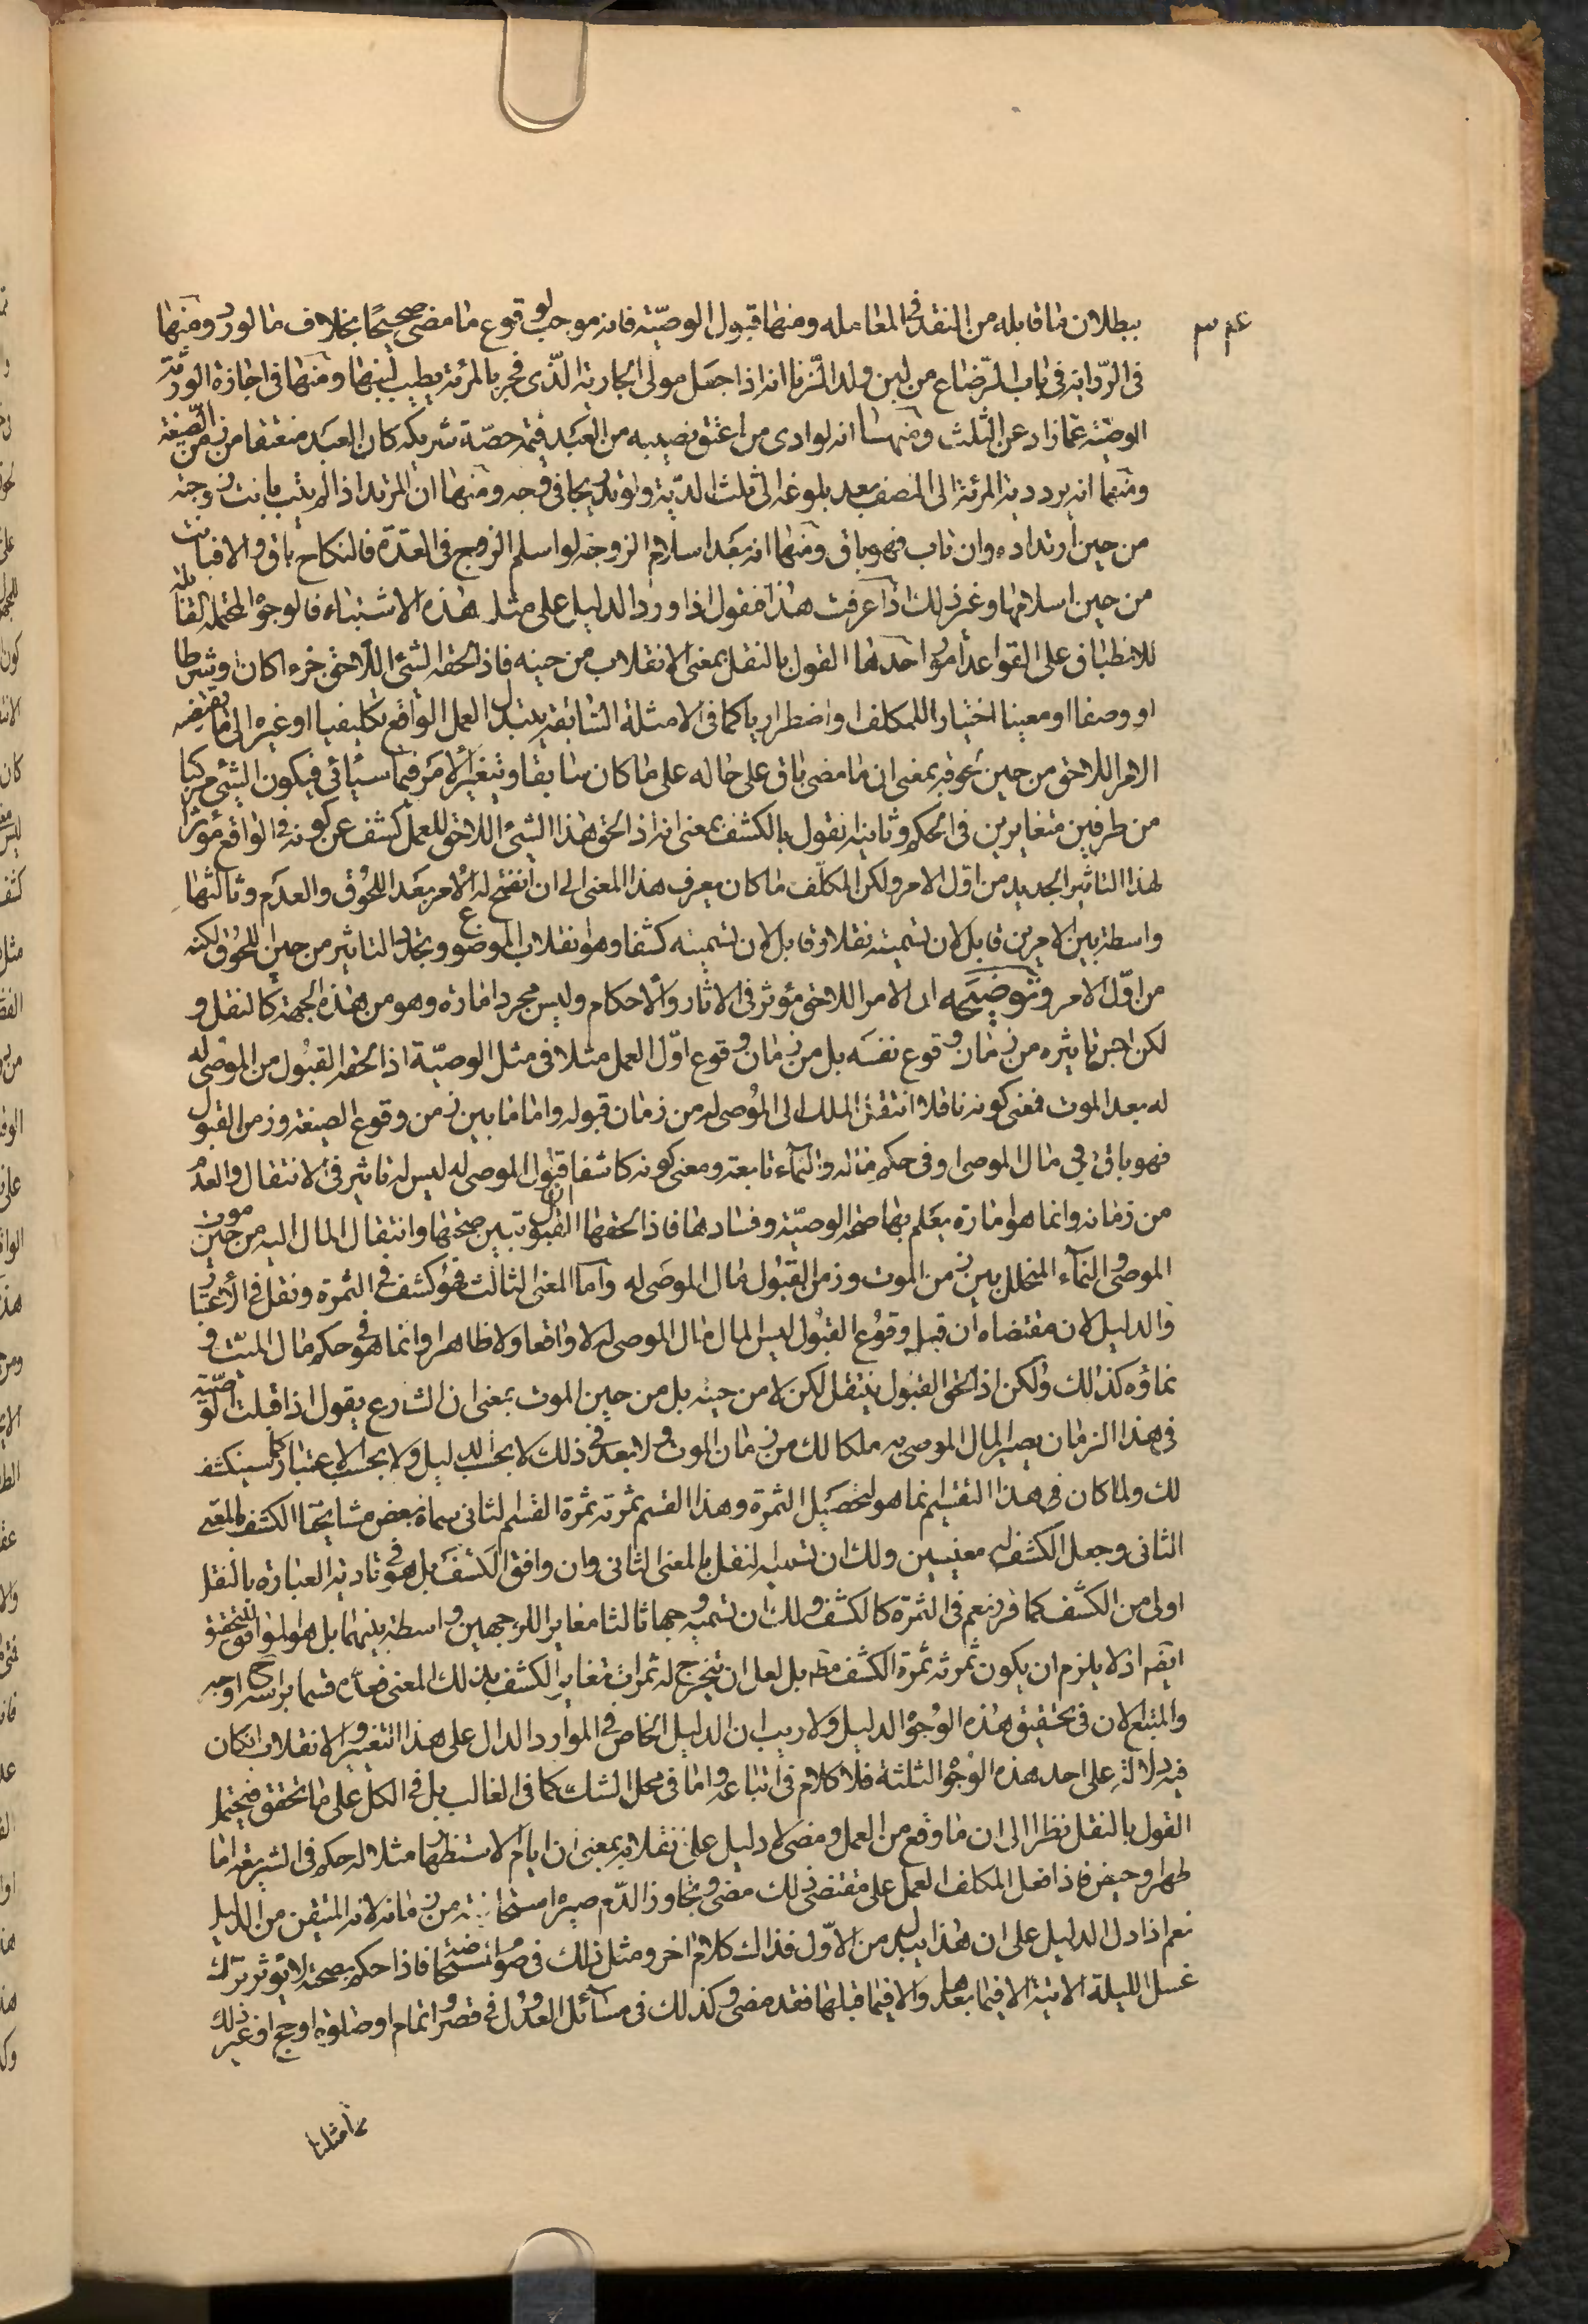 ببطلان ما قابله من النقد فى المعامله ومنها قبول الوصيّة فانه موجب لوقوع ما مضى صحيحًا بخلاف ما لو رد ومنها
فى الرّوايه فى باب الرّضاع من لبن ولد الزنا انه اذا جعل مولى الجارية الذّى فجر بالمرئة يطيب لبنها ومنها فى اجازة الورثة
الوصيّة عمّا زاد عن الثلث ومنها انه لو ادى من اعتق نصيبه من العبد قيمة حصّة شريكه كان العبد منعتقا من زمن الصّيغة
ومنها انه يرد دية المرئة الى النصف بعد بلوغه الى ثلث الدّية ولو تدريجا فى وجه ومنها ان المرتد اذا لم يتب بانت زوجته
من حين ارتداده وان تاب فهو باق ومنها انه بعد اسلام الزوجة لو اسلم الزوج فى العدّة فالنكاح باق والا فبانت
من حين اسلامها وغير ذلك اذا عرفت هذا فنقول اذا ورد الدليل على مثل هذه الاشتباه فالوجوه المحتملة القابلة
للانطباق على القواعد امور احدها القول بالنقل بمعنى الانقلاب من حينه فاذا لحقه الشئ اللاحق جزء اكان او شرطا
او وصفا او معينا اختيارا للمكلف او اضطراريا كما فى الامثلة السّابقة يتبدل العمل الواقع تكليفيا او غيره الى ما يقتضيه
الامر اللاحق من حين لحوقه بمعنى ان ما مضى باق على حاله على ما كان سابقا ويتغير الامر فيما سيأتى فيكون الشئ مركبا
من طرفين متغايرين فى الحكم وثانيها نقول بالكشف بمعنى انه اذا لحق هذا الشئ اللاحق للعمل كشف عن كونه فى الواقع مؤثرا
لهذا التاثير الجديد من اول الامر ولكن المكلّف ما كان يعرف هذا المعنى الى ان انفتح له الامر بعد اللحوق والعدم وثالثها
واسطة بين الامرين قابل لان تسميته نقلا وقابل لان تسميته كشفا وهو انقلاب الموضوع وتجدد التاثير من حين اللحوق لكنه
من اوّل الامر وتوضيحه ان الامر اللاحق مؤثر فى الاثار والاحكام وليس مجرد امارة وهو من هذه الجهة كالنقل و
لكن تاثيره من زمان وقوع نفسه بل من زمان وقوع اوّل العمل مثلا فى مثل الوصيّة اذا لحقه القبول من الموصى له
له بعد الموت فمعنى كونه ناقلا انتقال الملك الى الموصى له من زمان قبوله واما ما بين زمن وقوع الصيغة وزمن القبول
فهو باق فى مال الموصى او فى حكم ماله والنماء تابعة ومعنى كونه كاشفا ان قبول الموصى له ليس له تاثير فى الانتقال والعدم
من زمانه وانما هو امارة يعلم بها صحة الوصيّة وفسادها فاذا لحقها القبول تبين صحتها وانتقال المال اليه من حين موت
الموصى والنماء المتخلل بين زمن الموت وزمن القبول مال الموصى له واما المعنى الثالث فهو كشف فى الثمرة ونقل فى الاعتبار
والدليل لان مقتضاه ان قبل وقوع القبول ليس المال مال الموصى له لا واقعا ولا ظاهرا وانما هو فى حكم مال الميت و
نماؤه كذلك ولكن اذا لحق القبول ينتقل لكن لا من حينه بل من حين الموت بمعنى ان الشارع يقول اذا قبلت الوصيّة
فى هذا الزمان يصير المال الموصى به ملكا لك من زمان الموت ولا بعد فى ذلك لا بحسب الدليل ولا بحسب الاعتبار كما سينكشف
لك ولما كان فى هذا التقسيم انما هو لتحصيل الثمرة وهذا القسم ثمرته ثمرة القسم الثانى سماه بعض مشايخنا الكشف بالمعنى
الثانى وجعل الكشف له معنيين ولك ان تسميه النقل بالمعنى الثانى وان وافق الكشف بل هو فى تادية العبارة بالنقل
اولى من الكشف كما قرر نعم فى الثمرة كالكشف ولك ان تسميه وجها ثالثا مغايرا للوجهين واسطة بينهما بل هو الموافق للتحقيق
ايضا اذ لا يلزم ان يكون ثمرته ثمرة الكشف مطه بل لعل ان يتخرج له ثمرات تغاير الكشف بذلك المعنى فعدّه قسما براسه اوجه
والمتبع الان فى تحقيق هذه الوجوه الدليل ولا ريب ان الدليل الخاص فى الموارد الدال على هذا التغيير والانقلاب ان كان
فيه دلالة على احد هذه الوجوه الثلثة فلا كلام فى اتباعه واما فى محل الشك كما فى الغالب بل فى الكل على ما تحقق فيحتمل
القول بالنقل نظرا الى ان ما وقع من العمل ومضى لا دليل على انقلابه بمعنى ان ايام الاستظهار مثلا له حكم فى الشريعة اما
طهر او حيض فاذا فعل المكلف العمل على مقتضى ذلك مضى وتجاوز الدّم صيره استحاضة من زمانه لانه المتيقن من الدليل
نعم اذا دل الدليل على ان هذا يبدل من الاوّل فذلك كلام اخر ومثل ذلك فى صوم المستحاضة فاذا حكم بصحته لا يؤثر ترك
غسل الليلة الاتية الا فيما بعدها والا فيما قبلها فقد مضى وكذلك فى مسائل العدول فى قصر واتمام او صلوة او حج او غير ذلك